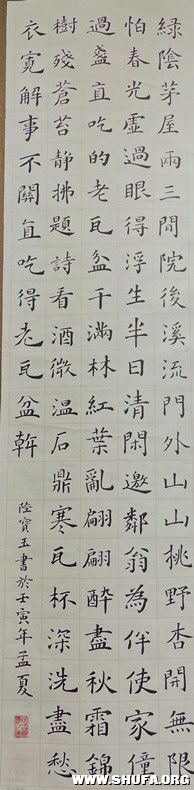 綠陰茅屋兩三間院後溪流門外山山桃野杏開無限
怕春光虛過眼得浮生半日清閑邀鄰翁為伴使家僮
過盞直吃的老瓦盆干滿林紅葉亂翩翩醉盡秋霜錦
樹殘蒼苔靜拂題詩看酒微溫石鼎寒瓦杯深洗盡愁
衣寬解事不關直吃得老瓦盆幹
陸寶玉書於壬寅年孟夏
WWW.SHUFA.ORG